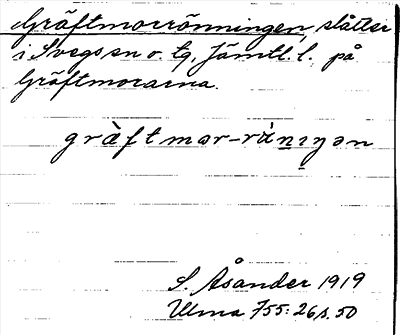 Gräftmorrönningen, slåtter
i Svegs sn o. tg, Jämtl. l. på
Gräftmorarna.
gràftmor-rǜnıŋən
S. Åsander 1919
Ulma 755:26 s. 50